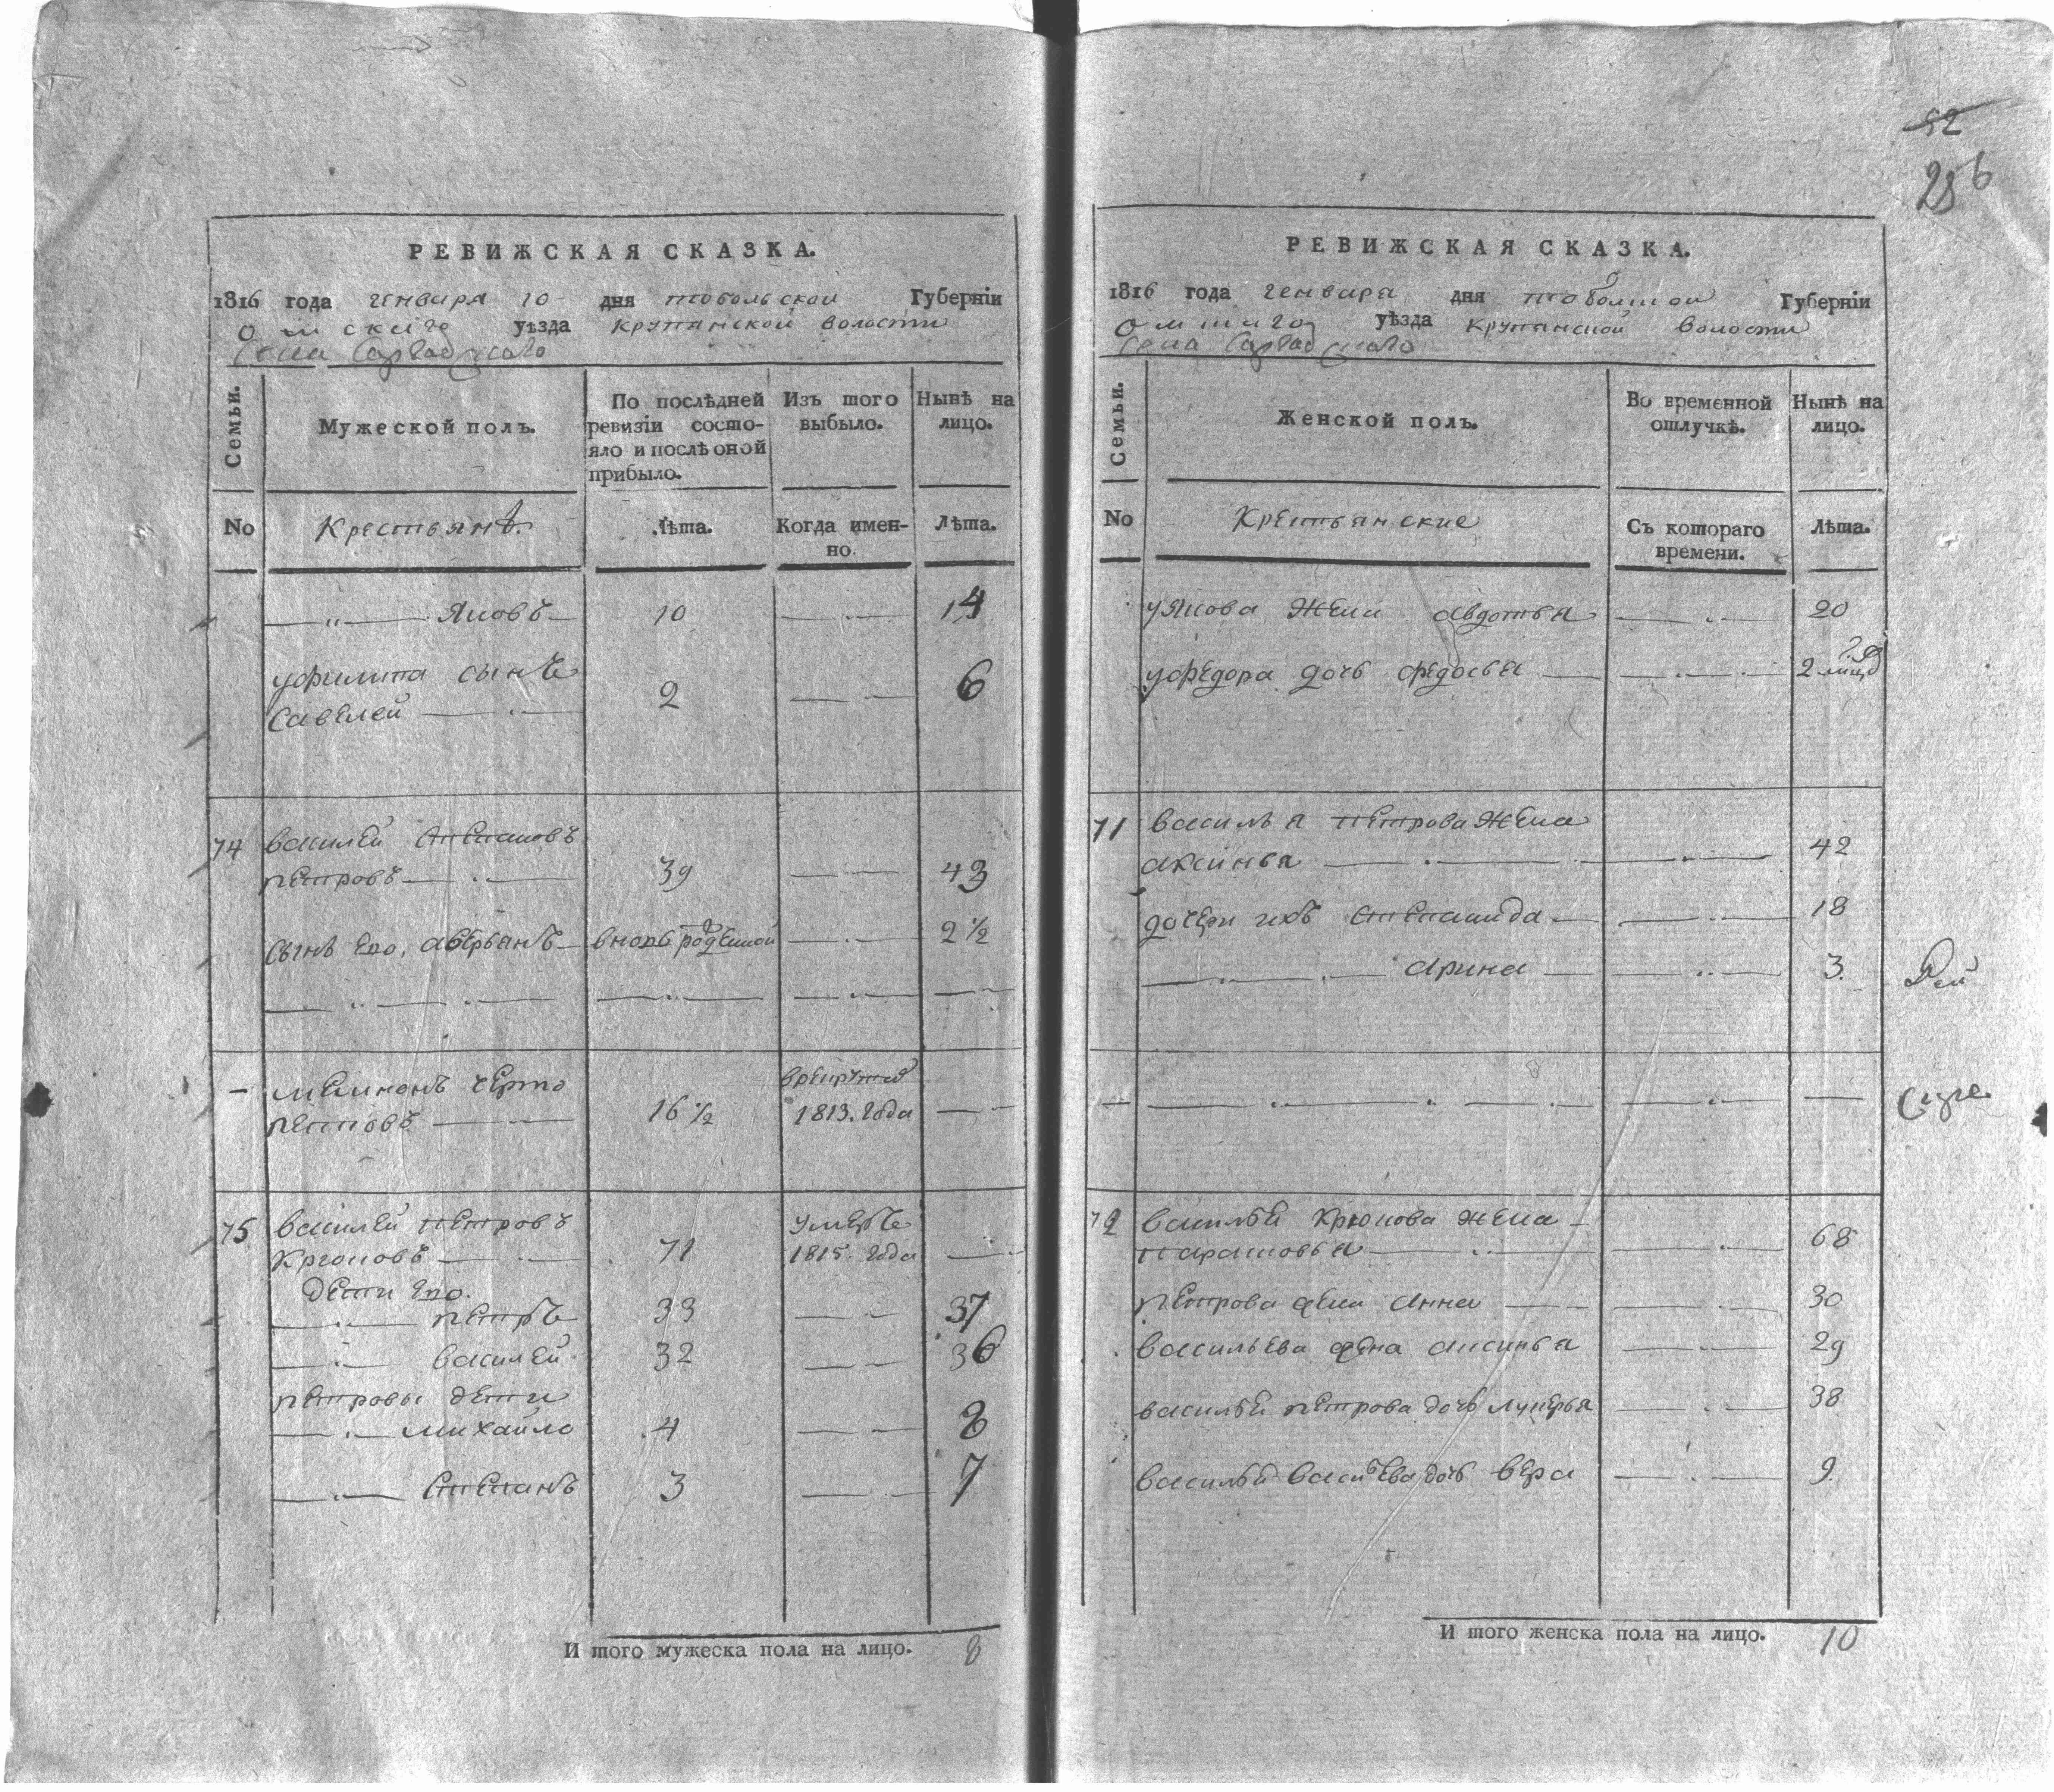 52
256
РЕВИЖСКАЯ СКАЗКА.
1816 года генваря 10 дня тобольской Губерніи
Омскаго уѣзда крупянской волости
Села Саргадскаго
Семьи.
Мужеской полъ.
По послѣдней ревизіи состо-
яло и послѣ оной
прибыло.
Изъ того
выбыло.
Нынѣ на
лицо.
No
Крестьянѣ
Лѣта.
Когда имен-
но.
Лѣта.
— " — Яковъ — 10 — 14
уфилипа сынъ
Савелей — 2 — 6
74 василей Степановъ
петровъ — 39 — 43
Сынъ Его, аверьянъ — вновь рожденной — 2 ½
— меимонъ черто
16 ½ врекруты
1813. года —
75 василей петровъ
Крюковъ — 71 умеръ
1815. года —
дети Его.
— петръ 33 — 37
— василей 32 — 36
петровы дети
— михайло 4 — 8
— Степанъ 3 — 7
И того мужеска пола на лицо. 8
РЕВИЖСКАЯ СКАЗКА.
1816 года генваря дня тобольской Губерніи
омскаго уѣзда крупянской волости
Села Саргадскаго
Семьи.
Женской полъ.
Во временной
отлучкѣ.
Нынѣ на
лицо.
No
Крестьянские
Съ котораго
времени.
Лѣта.
уякова жена авдотья — 20
уфедора дочь федосья — 2
71 василья петрова жена
аксинья — 42
дочери ихъ Степанида — 18
— арина — 3.
72 васильи Крюкова жена
парасковья — 68
петрова жена анна — 30
васильева жена аксинья — 29
васильи петрова дочь лукерья — 38
васильи васильева дочь вера — 9
И того женска пола на лицо. 10